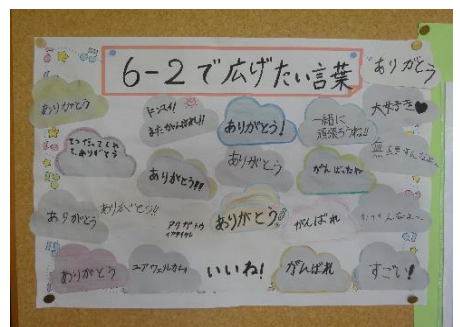 6-2で広げたい言葉
ありがとう
ありがとう
ドンマイ!
またがんばれ!!
ありがとう!
一緒に
頑張ろうね!!
大好き♥
手つだってくれ
てありがとう
ありがとう!!
ありがとう
がんばったね
無理すんなよ~
ありがとう
ありがとう!!
アリガトウ
ありがとう!
がんばれ
ありがとう
ユアウェルカム
いいね!
がんばれ
すごい!